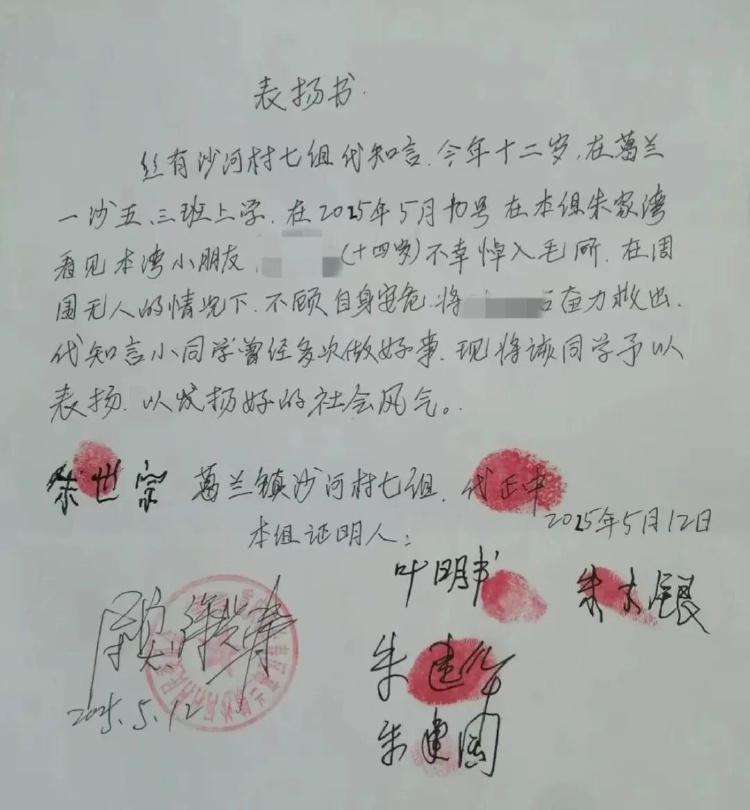 表扬书.
丝有沙河村七组代知言.今年十二岁,在葛兰
一沙五.三班上学.在2025年5月九号在本俱朱家湾
看见本湾小朋友.(十四岁)不幸悼入毛所.在周
围无人的情况下.不顾自身安危.将奋力救出.
代知言小同学曾经多次做好事.现将该同学予以
表扬.以发扬好的社会风气。
朱世宗 葛兰镇沙河村七组.代正中
2025年5月12日
本组证明人:
叶明书 朱木银
朱建华
2025.5.12
朱建国